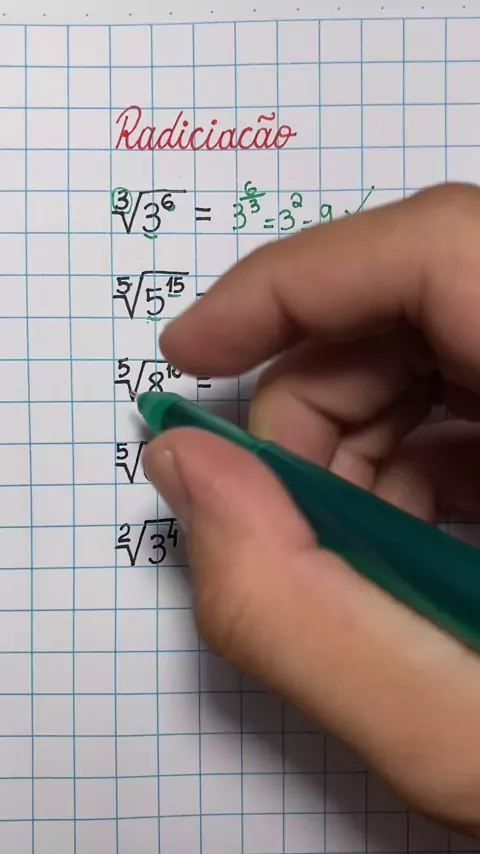 Radiciacão
∛3⁶ = 3^(6/3) = 3² = 9 ✓
⁵√5¹⁵ =
⁵√8 =
⁵√
²√3⁴